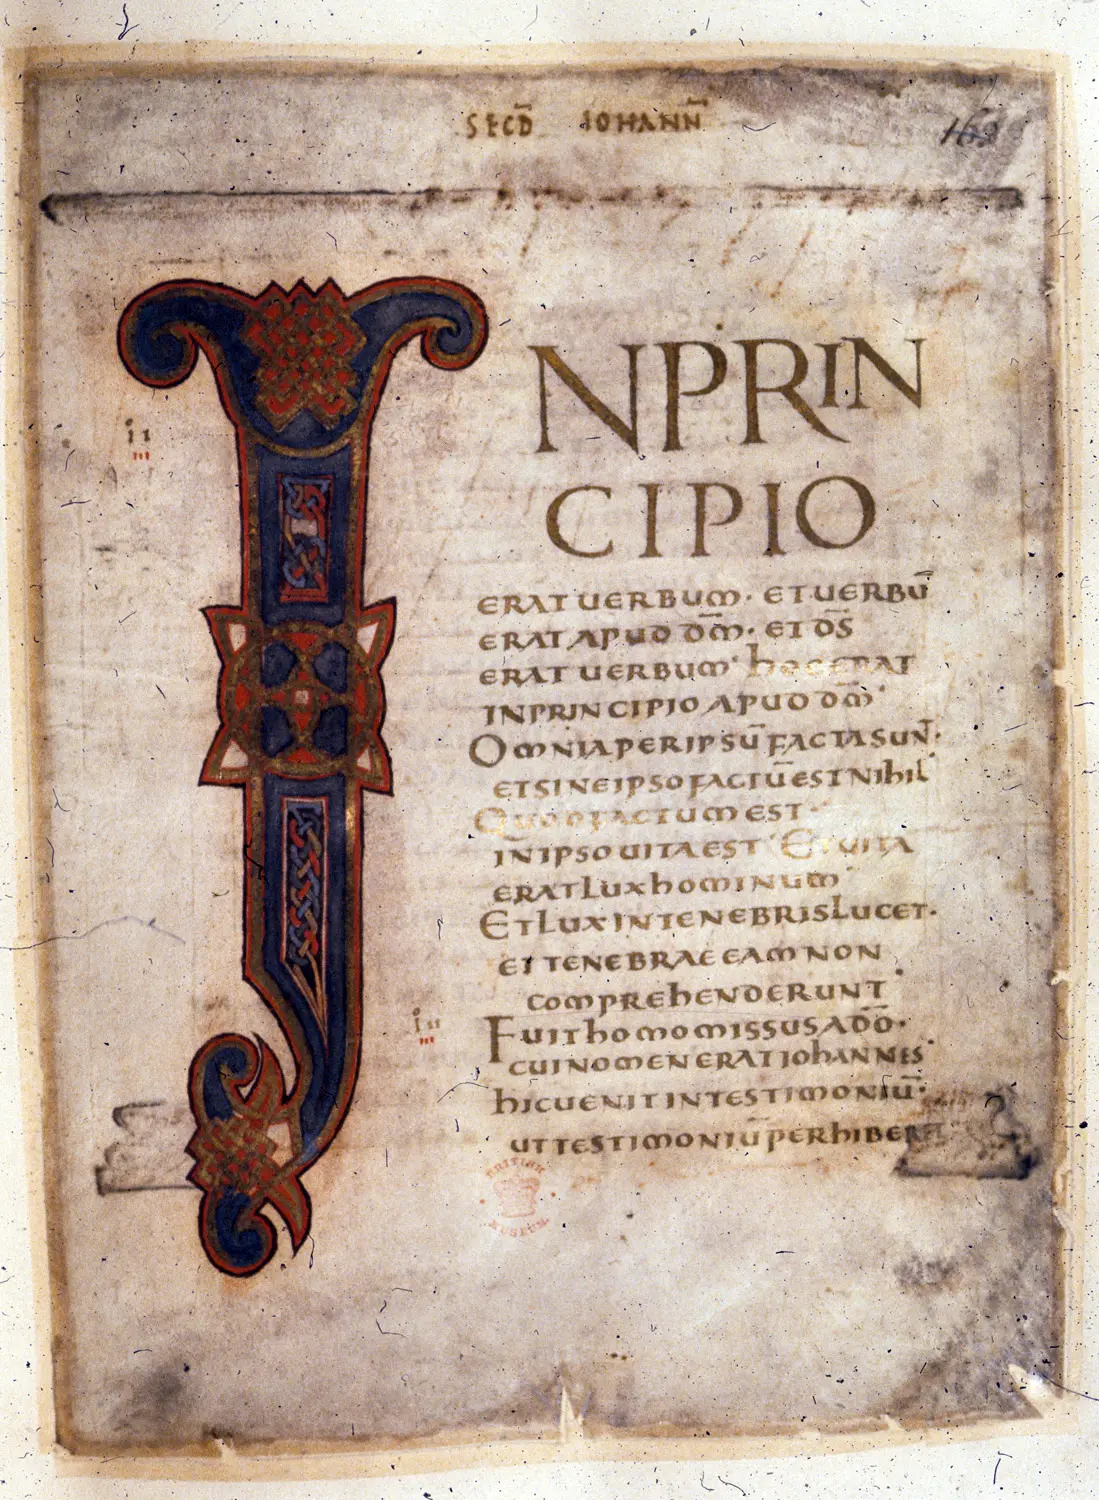 SECD̄ IOHANN̄
162
INPRIN
CIPIO
ERAT UERBUM· ET UERBŪ
ERAT APUD DM̄· ET DS̄
ERAT UERBUM· hOC ERAT
IN PRINCIPIO APUD DM̄·
OMNIA PER IPSŪ FACTA SUNT̄·
ET SINE IPSO FACTŪ EST NIhIL
QUOD FACTUM EST·
IN IPSO UITA EST· ET UITA
ERAT LUX hOMINUM·
ET LUX IN TENEBRIS LUCET·
ET TENEBRAE EAM NON
COMPREhENDERUNT·
FUIT hOMO MISSUS A DŌ·
CUI NOMEN ERAT IOhANNES·
hIC UENIT IN TESTIMONIŪ·
UT TESTIMONIŪ PERhIBER
ii
iii
iii
BRITISH
MUSEUM